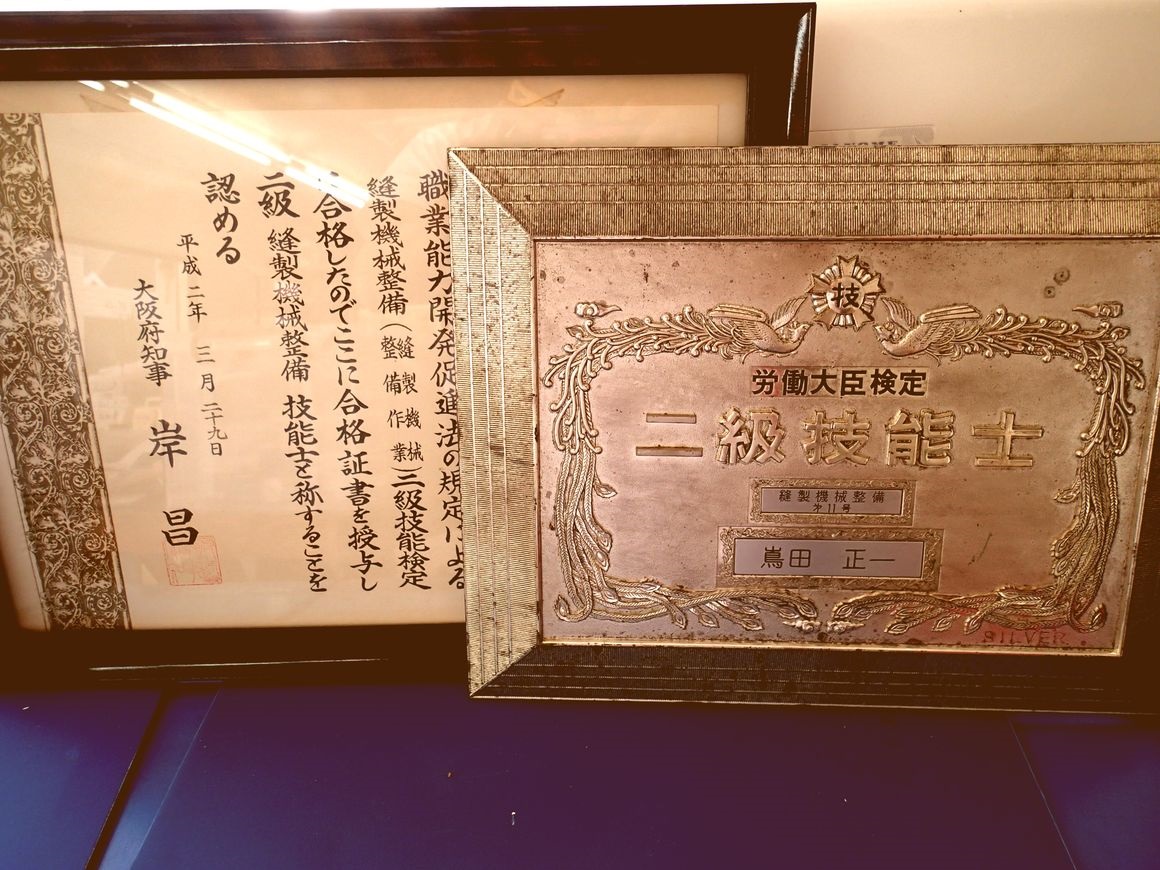 職業能力開発促進法の規定による
縫製機械整備(縫製機械整備作業)二級技能検定
に合格したのでここに合格証書を授与し
二級 縫製機械整備 技能士と称することを
認める
平成二年 三月二十九日
大阪府知事 岸 昌
技
労働大臣検定
二級技能士
縫製機械整備
㐧11号
嶌田 正一
SILVER